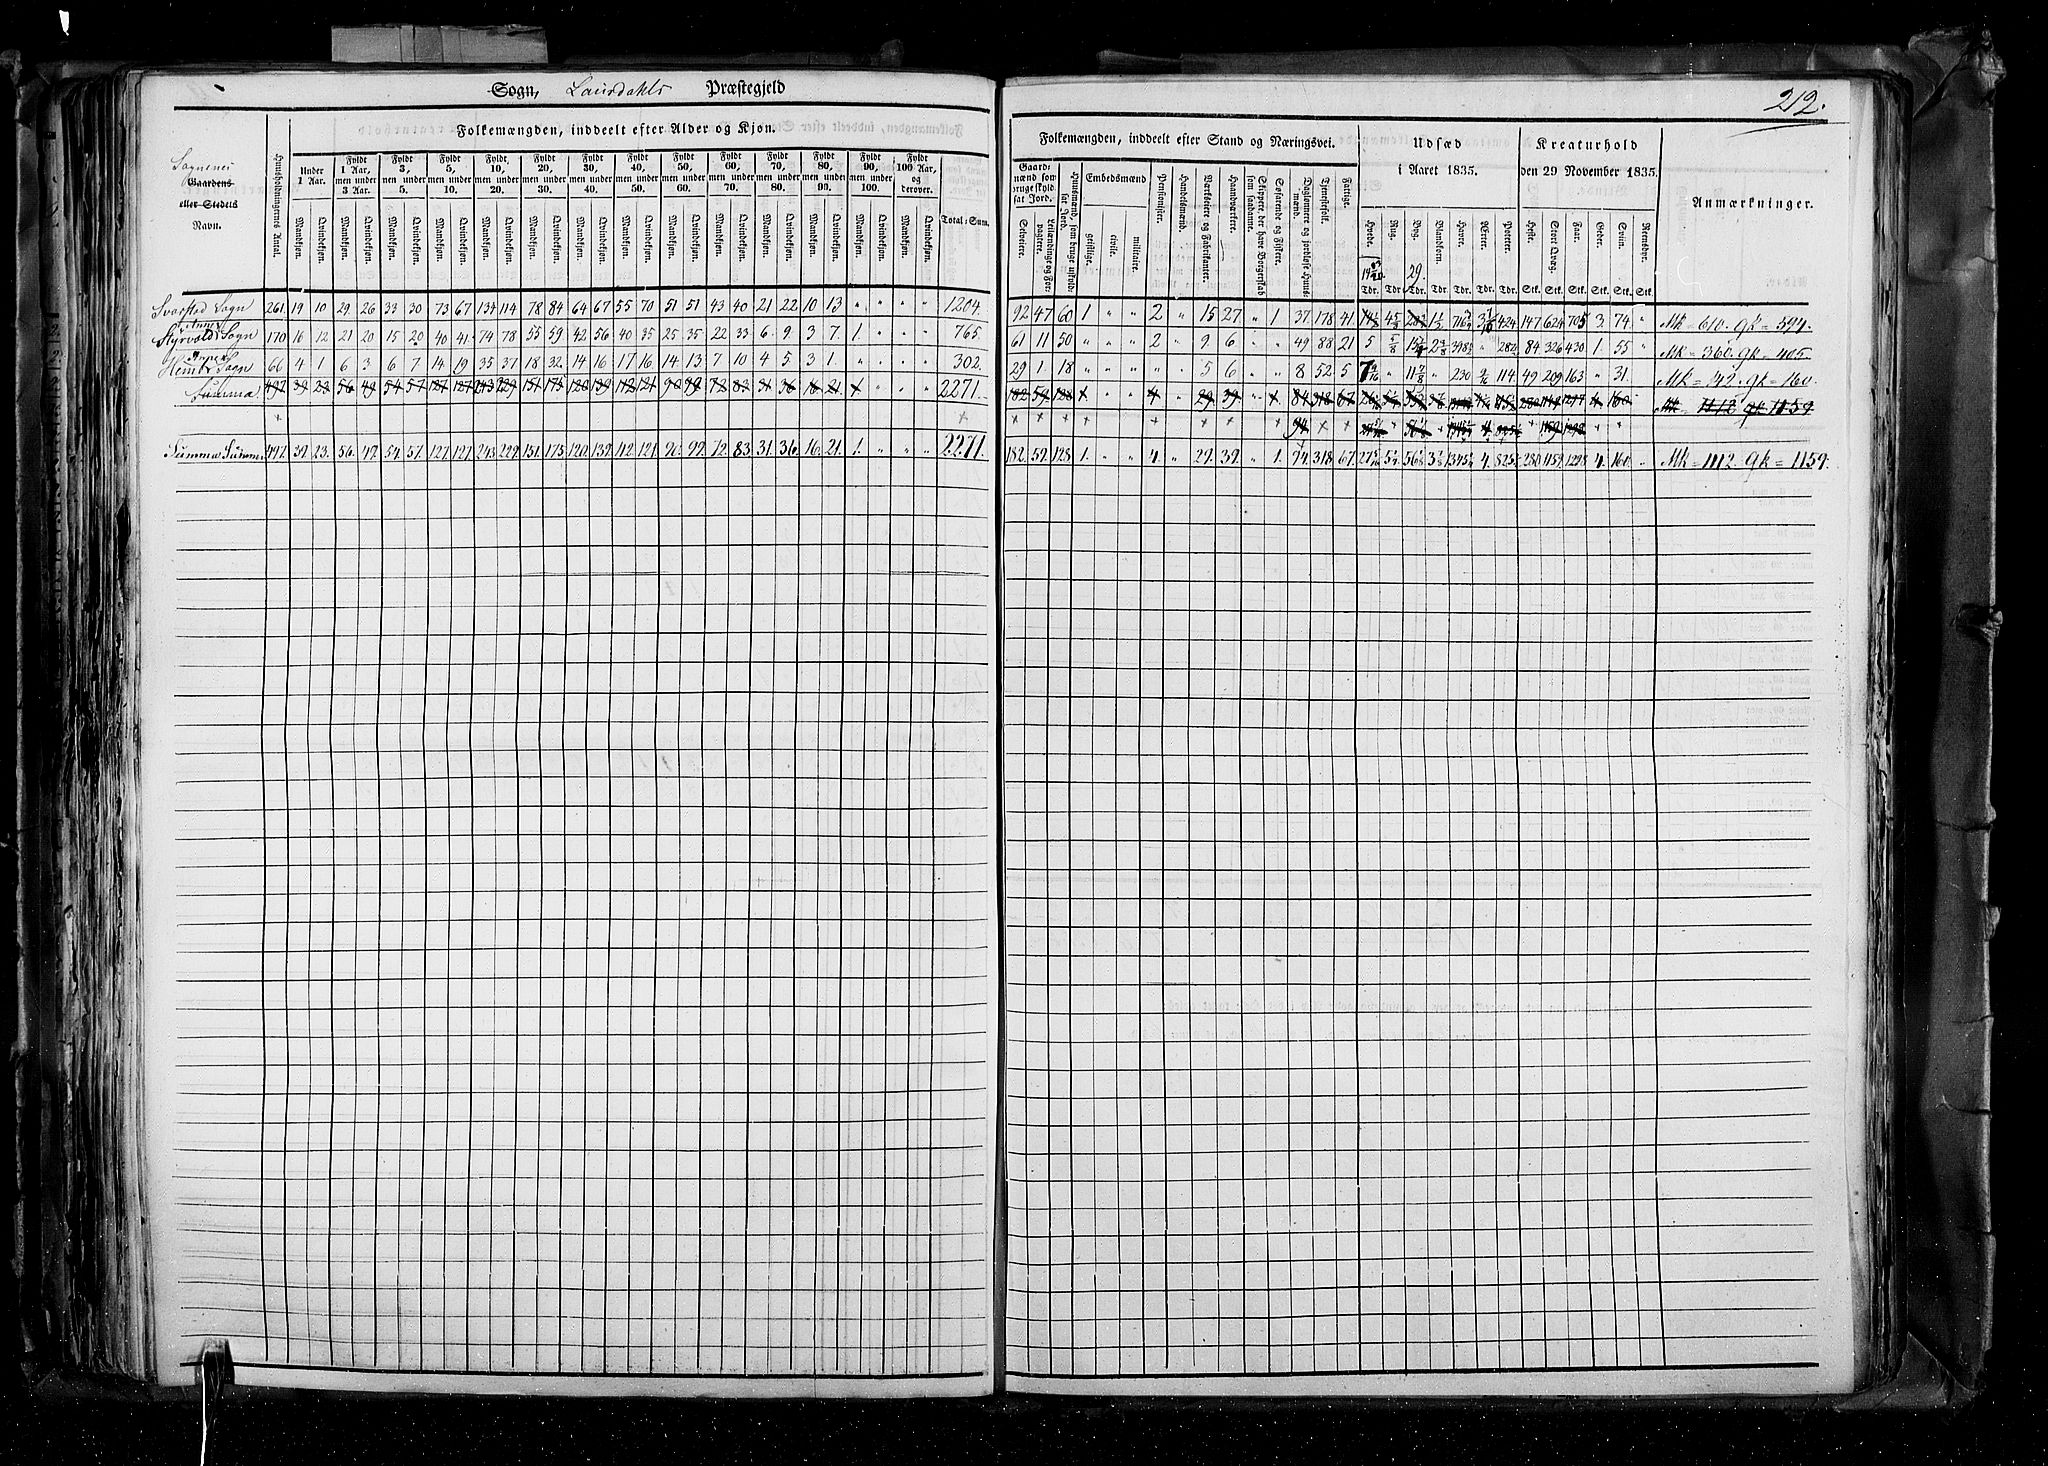 Sogn, Laurdahls Præstegjeld
212.
Sognenes
Gaardens
eller Stedets
Navn.
Huusholdningernes Antal.
Folkemængden, inddeelt efter Alder og Kjøn.
Under 1 Aar.
Fyldt 1 Aar, men under 3 Aar.
Fyldt 3, men under 5.
Fyldt 5, men under 10.
Fyldt 10, men under 20.
Fyldt 20, men under 30.
Fyldt 30, men under 40.
Fyldt 40, men under 50.
Fyldt 50, men under 60.
Fyldt 60, men under 70.
Fyldt 70, men under 80.
Fyldt 80, men under 90.
Fyldt 90, men under 100.
Fyldt 100 Aar, og derover.
Mandkjøn. Qvindekjøn.
Total-Sum.
Folkemængden, inddeelt efter Stand og Næringsvei.
Gaardmænd som bruge skyldsat Jord.
Selveiere.
Leilændinge og Forpagtere.
Huusmænd, som bruge uskyldsat Jord.
Embedsmænd
geistlige. civile. militaire.
Pensionister.
Handelsmænd.
Værkseiere og Fabrikanter.
Haandværkere.
Skippere der have Borgerskab som saadanne.
Søfarende og Fiskere.
Dagslønnere og jordløse Huusmænd.
Tjenestefolk.
Fattige.
Udsæd i Aaret 1835.
Hvede. Rug. Byg. Blandkorn. Havre. Erter. Poteter.
Tdr. Tdr. Tdr. Tdr. Tdr. Tdr. Tdr.
Kreaturhold den 29 November 1835.
Heste. Stort Qvæg. Faar. Geder. Sviin. Rensdyr.
Stk. Stk. Stk. Stk. Stk. Stk.
Anmærkninger.
Svarstad Sogn 261 19 10 29 26 33 30 73 67 134 114 78 84 64 67 55 70 51 51 43 40 21 22 10 13 " " " " 1204. 92 47 60 1 " " 2 " 15 27 " 1 37 178 41 147 624 705 3. 74. " Mk = 610. Qk = 594.
Styrvold Sogn 170 16 12 21 20 15 20 40 41 74 78 55 59 42 56 40 35 25 35 22 33 6. 9. 3 7. 1. " " " 765. 61 11 50 " " " 2 " 9 6 " " 49 88 21 5 84 326 430 1. 55 " Mk = 360. Qk = 405.
Sogn 66 4 1. 6 3 6 7 14 19 35 37 18 32 14 16 17 16 14 13 7 10 4 5 3 1. " " " " 302. 29 1 18 " " " " " 5 6 " " 8 52 5 230 114. 49 209 163 " 31. " Mk = 142. Qk = 160.
Summa 2271.
Mk = 1112 Qk 1159
Summa Summ 497. 39. 23. 56. 49. 54. 57. 127. 127. 243 229. 151. 175. 120. 139. 112. 121. 90. 99. 72. 83. 31. 36. 16. 21. 1. " " " 2271. 182. 59. 128. 1. " " 4. " 29. 39. " 1. 94. 318. 67. 4. 280 1159 1298 4. 160. " Mk = 1112. Qk = 1159.